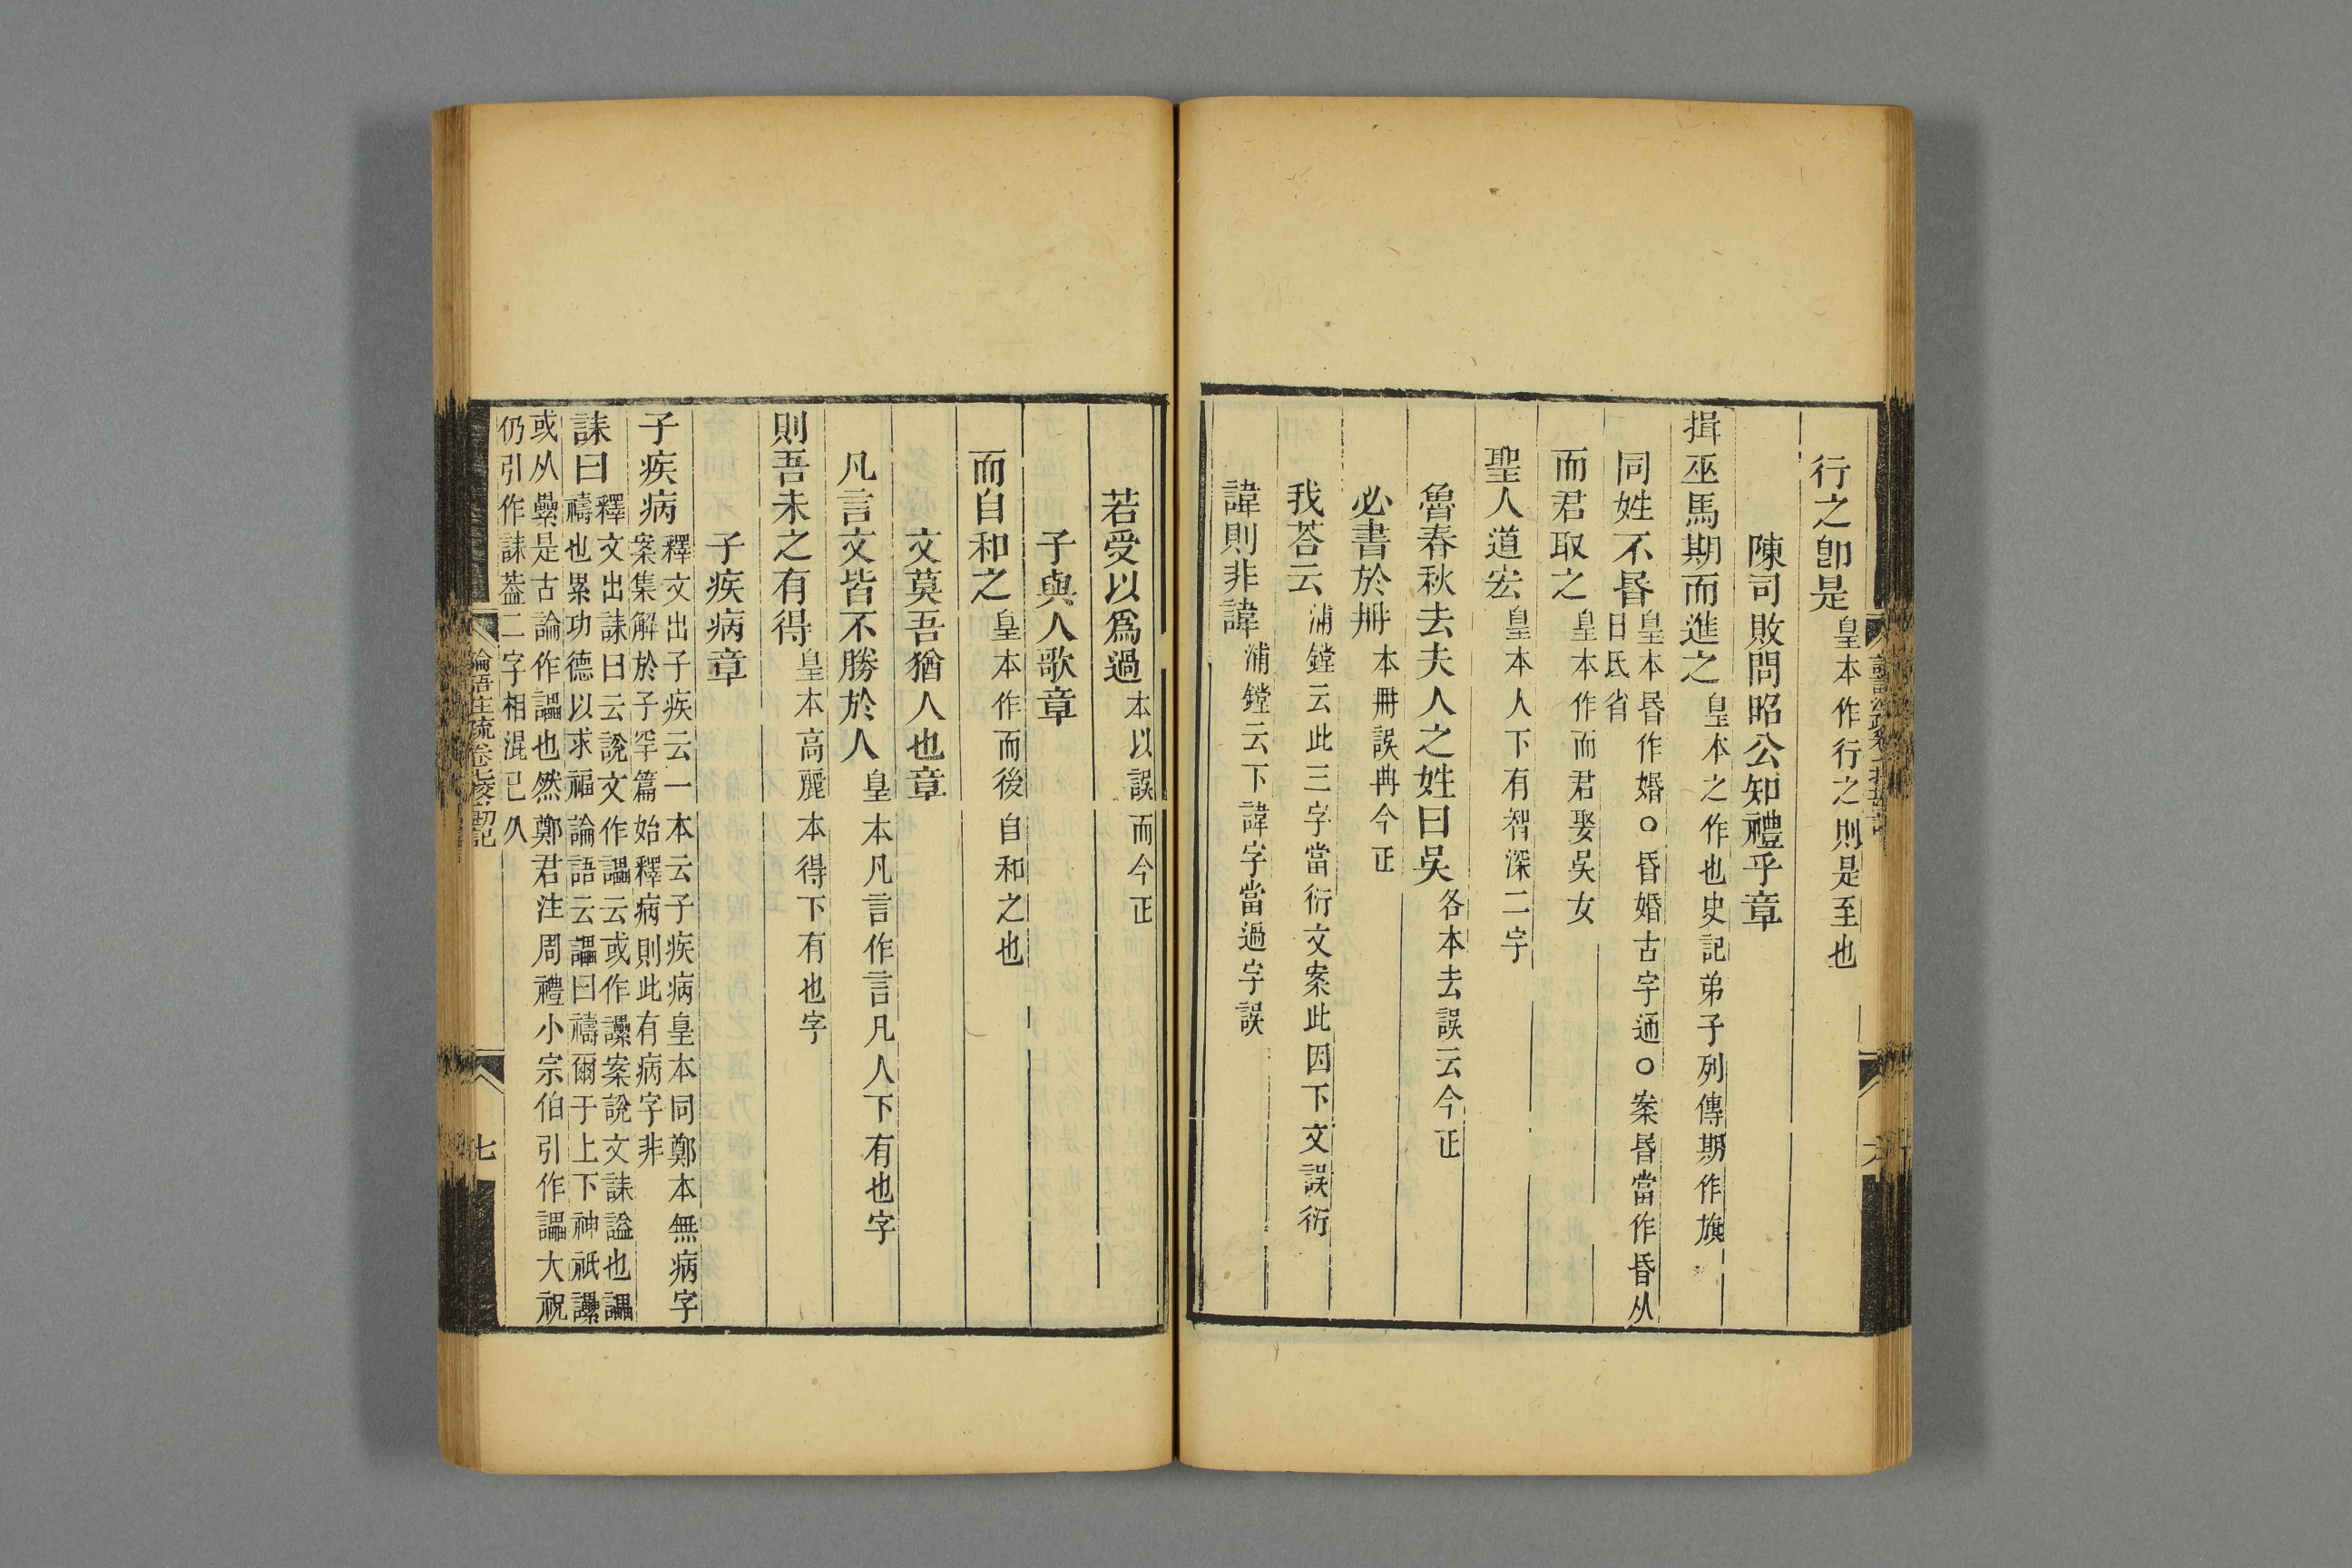 行之卽是皇本作行之則是至也
陳司敗問昭公知禮乎章
揖巫馬期而進之皇本之作也史記弟子列傳期作旗
同姓不昬皇本昬作婚○昏婚古字通○案昬當作昏从日氐省
而君取之皇本作而君娶吳女
聖人道宏皇本人下有智深二字
魯春秋去夫人之姓曰吳各本去誤云今正
必書於冊本冊誤冉今正
我荅云浦鏜云此三字當衍文案此因下文誤衍
諱則非諱浦鏜云下諱字當過字誤
若受以爲過本以誤而今正
子與人歌章
而自和之皇本作而後自和之也
文莫吾猶人也章
凡言文皆不勝於人皇本凡言作言凡人下有也字
則吾未之有得皇本高麗本得下有也字
子疾病章
子疾病釋文出子疾云一本云子疾病皇本同鄭本無病字案集解於子罕篇始釋病則此有病字非
誄曰釋文出誄曰云說文作讄云或作䜡案說文誄謚也讄禱也累功德以求福論語云讄曰禱爾于上下神祇䜡
或从纍是古論作讄也然鄭君注周禮小宗伯引作讄大祝
仍引作誄葢二字相混已久
論語注疏卷七挍勘記
七